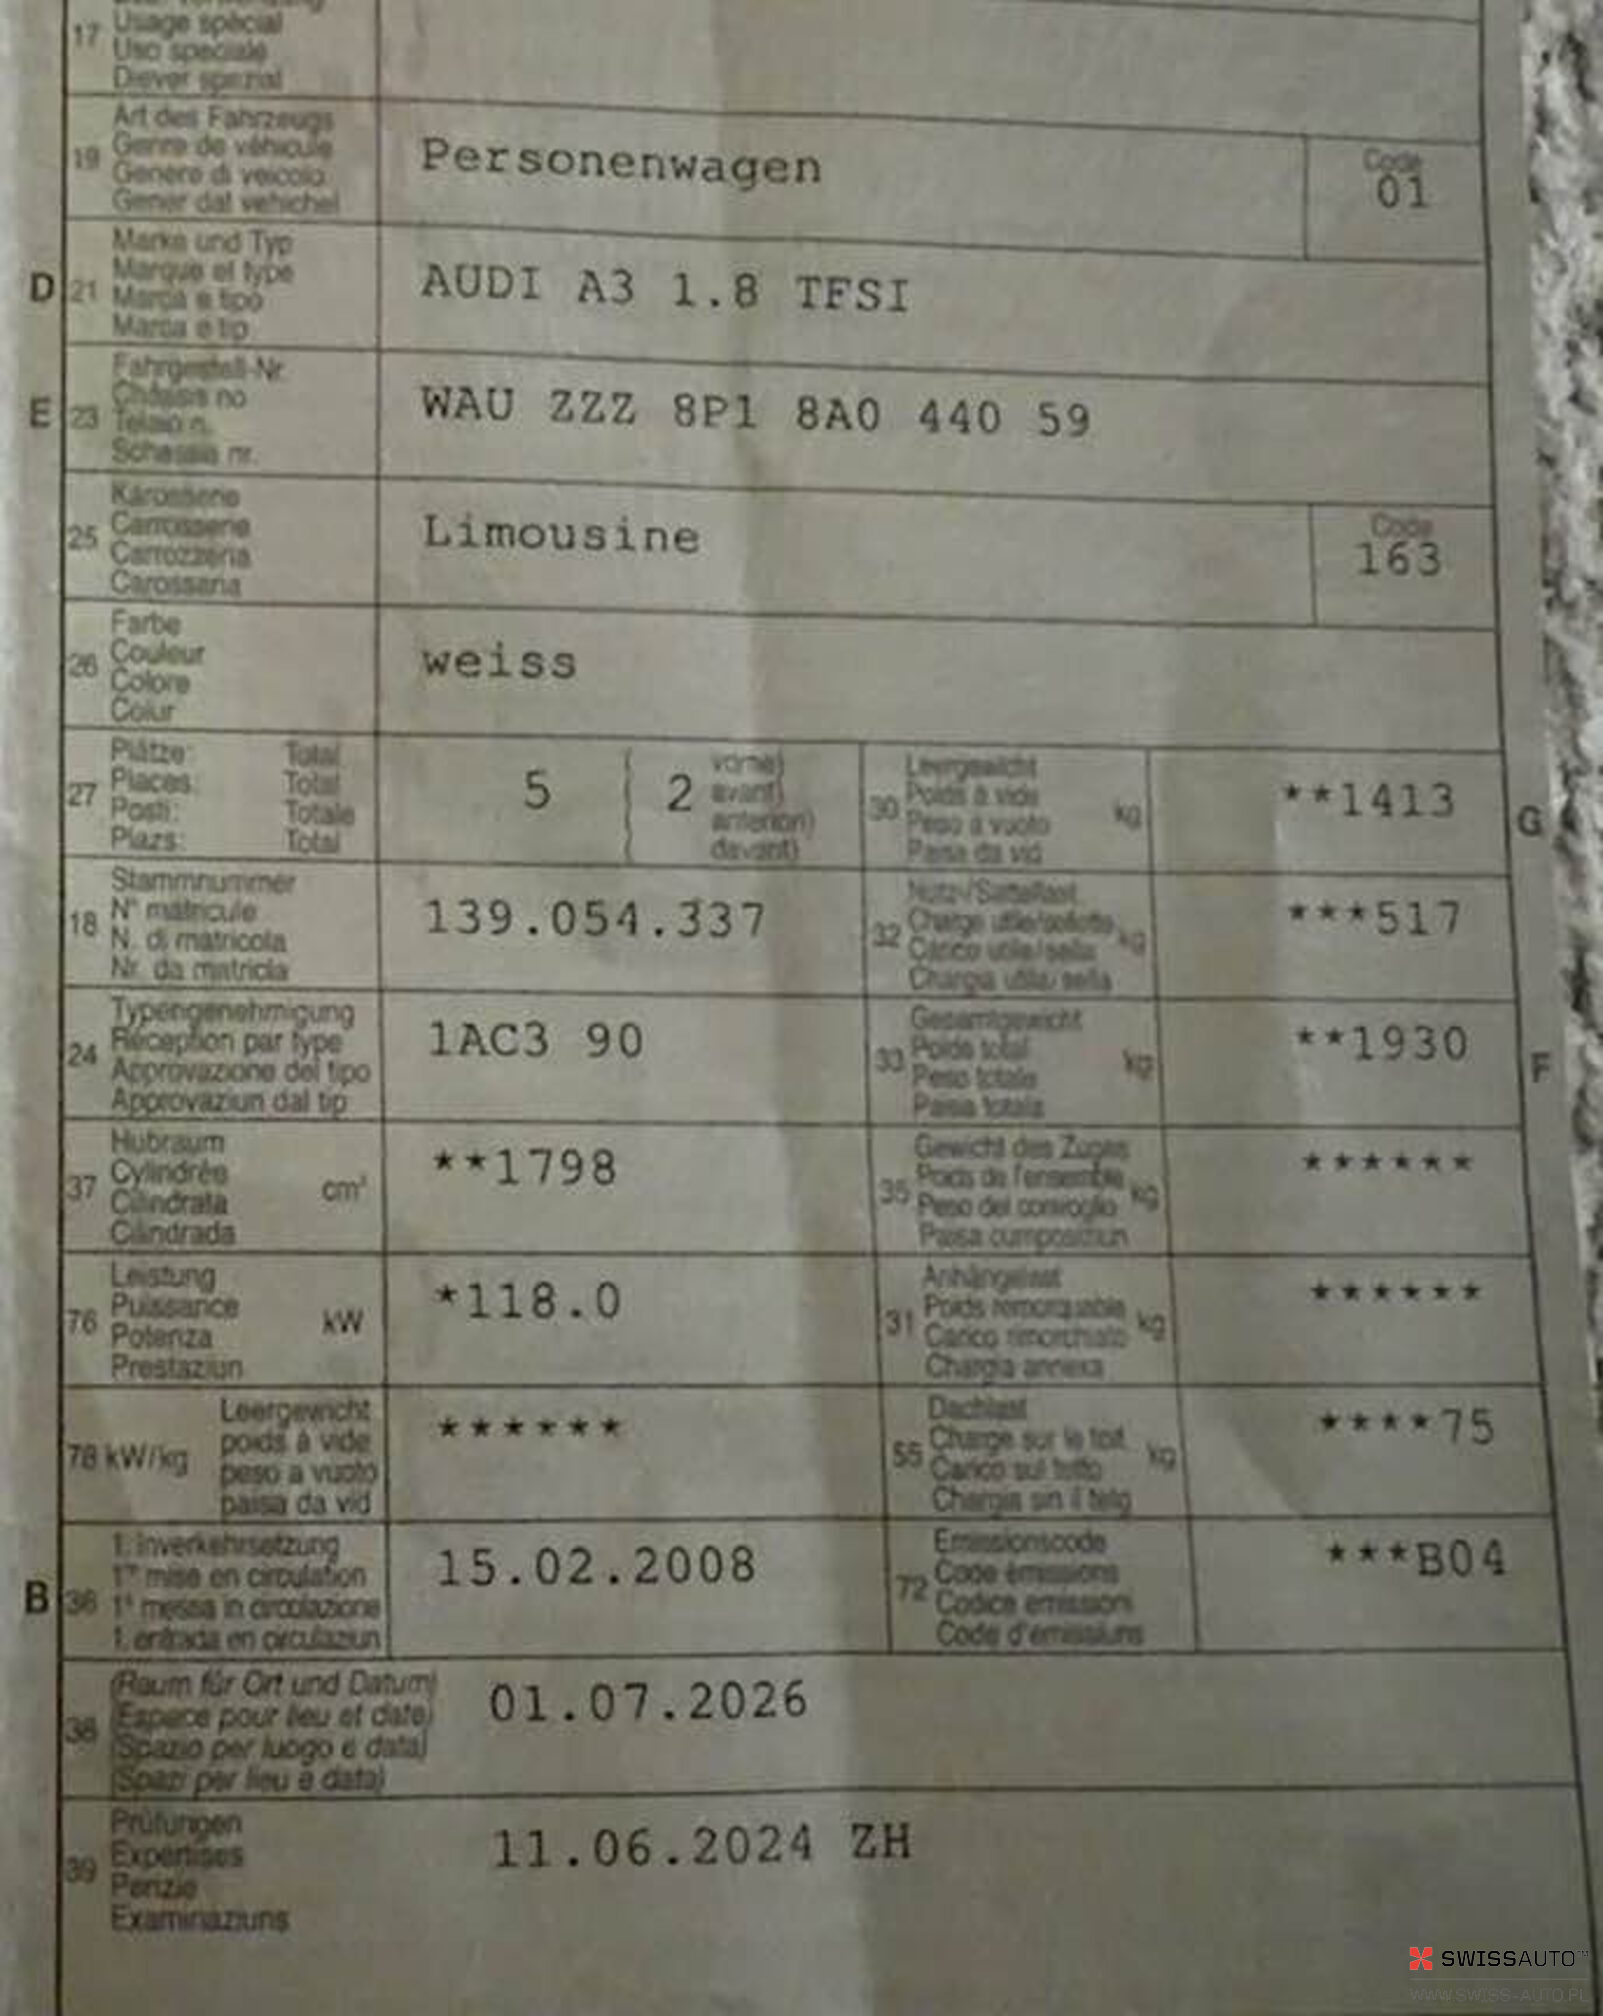 17 Usage spécial
Uso speciale
Diever spezial
19 Art des Fahrzeugs
Genre de véhicule
Genere di veicolo
Gener dal vehichel
Personenwagen
Code
01
D 21 Marke und Typ
Marque et type
Marca e tipo
Marca e tip
AUDI A3 1.8 TFSI
E 23 Fahrgestell-Nr.
Châssis no
Telaio n.
Schassis nr.
WAU ZZZ 8P1 8A0 440 59
25 Karosserie
Carrosserie
Carrozzeria
Carossaria
Limousine
Code
163
26 Farbe
Couleur
Colore
Colur
weiss
27 Plätze: Total
Places: Total
Posti: Totale
Plazs: Total
5 ( 2 vorne)
avant)
anteriori)
davant)
30 Leergewicht
Poids à vide
Peso a vuoto
Paisa da vid
kg
**1413 G
18 Stammnummer
N° matricule
N. di matricola
Nr. da matricla
139.054.337
32 Nutz-/Sattellast
Charge utile/sellette
Carico utile/sella
Chargia utila/sella
kg
***517
24 Typengenehmigung
Réception par type
Approvazione del tipo
Approvaziun dal tip
1AC3 90
33 Gesamtgewicht
Poids total
Peso totale
Paisa totala
kg
**1930 F
37 Hubraum
Cylindrée
Cilindrata
Cilindrada
cm³
**1798
35 Gewicht des Zuges
Poids de l'ensemble
Peso del convoglio
Paisa cumposiziun
kg
******
76 Leistung
Puissance
Potenza
Prestaziun
kW
*118.0
31 Anhängelast
Poids remorquable
Carico rimorchiato
Chargia annexa
kg
******
78 kW/kg Leergewicht
poids à vide
peso a vuoto
paisa da vid
******
55 Dachlast
Charge sur le toit
Carico sul tetto
Chargia sin il tetg
kg
****75
B 36 1. Inverkehrsetzung
1re mise en circulation
1a messa in circolazione
1. entrada en circulaziun
15.02.2008
72 Emissionscode
Code émissions
Codice emissioni
Code d'emissiuns
***B04
38 (Raum für Ort und Datum)
(Espace pour lieu et date)
(Spazio per luogo e data)
(Spazi per lieu e data)
01.07.2026
39 Prüfungen
Expertises
Perizie
Examinaziuns
11.06.2024 ZH
SWISSAUTO™
WWW.SWISS-AUTO.PL